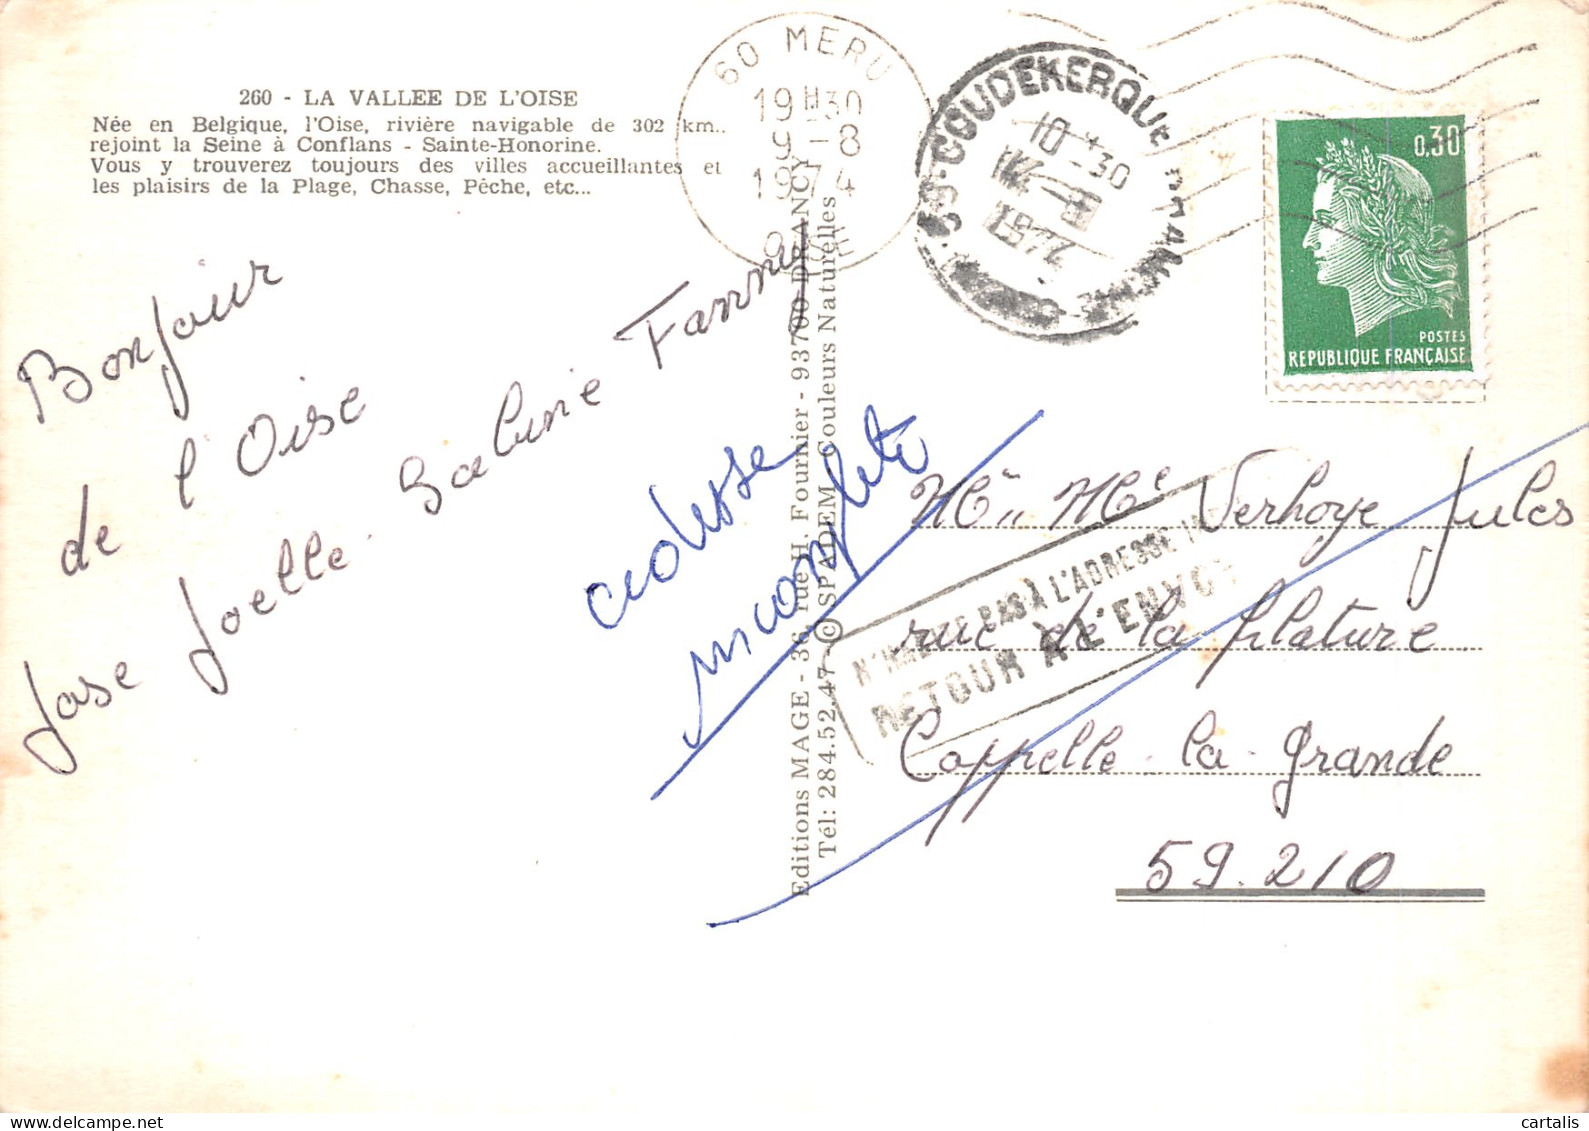 260 - LA VALLEE DE L'OISE
Née en Belgique, l'Oise, rivière navigable de 302 km.,
rejoint la Seine à Conflans - Sainte-Honorine.
Vous y trouverez toujours des villes accueillantes et
les plaisirs de la Plage, Chasse, Pêche, etc...
60 MERU
19H30
9-8
1974
OISE
59-COUDEKERQUE BRANCHE
10 30
0,30
POSTES
REPUBLIQUE FRANÇAISE
Bonjour
de l'Oise
Jose Joelle Sabine Fanny
Editions MAGE - 36, rue H. Fournier - 93700 DRANCY
Tél: 284.52.47 - © SPADEM - Couleurs Naturelles
adresse
incomplete
N'HABITE PAS À L'ADRESSE
RETOUR À L'ENVOYEUR
Mr Me Verhoye Jules
rue de la filature
Cappelle-la-Grande
59.210
cartalis